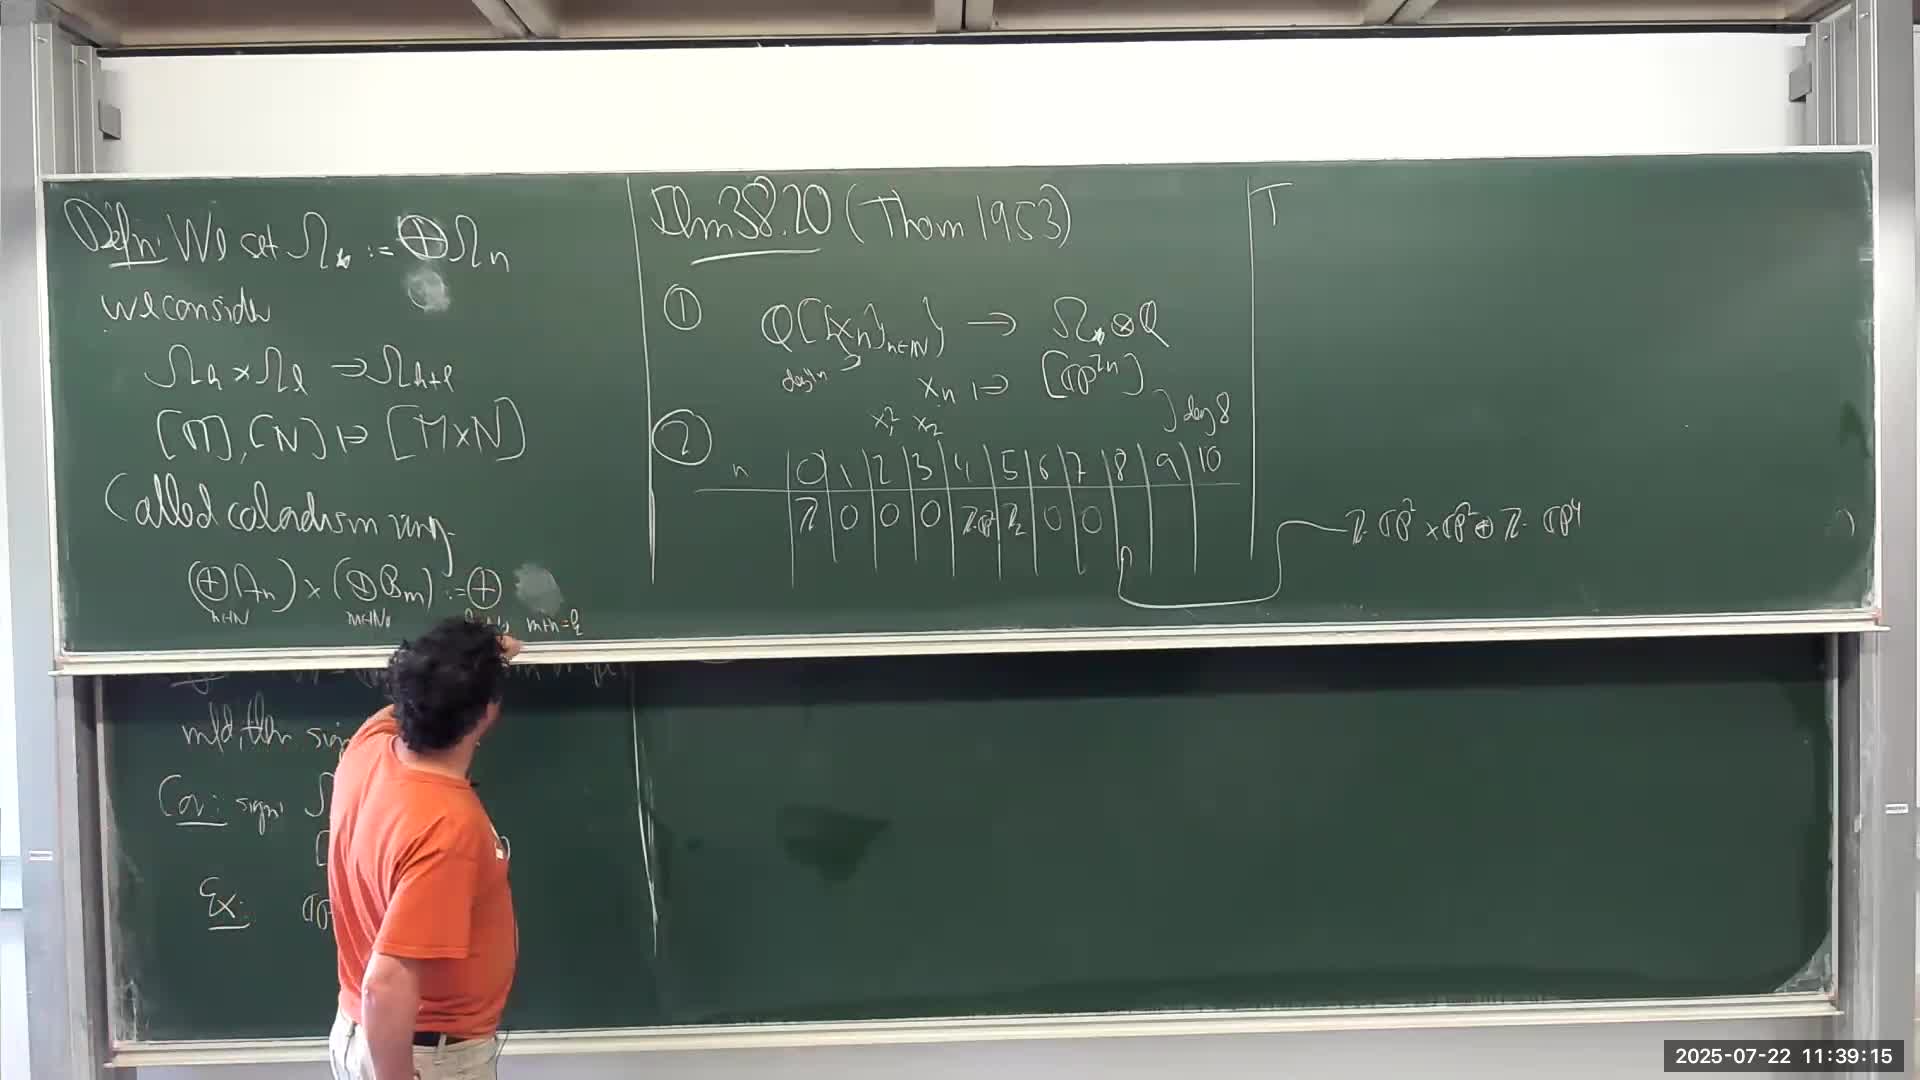 Defn: We set Ω_* := ⊕ Ω_n
we consider
Ω_k × Ω_l → Ω_{k+l}
[M], [N] ↦ [M×N]
Called cobordism ring
(⊕ A_n) × (⊕ B_m) := ⊕
n∈ℕ m∈ℕ₀ m+n=k
mfd, then sign
Cor: sign: Ω
Ex: ℂP
Thm 38.20 (Thom 1953)
① ℚ[{x_n}_{n∈ℕ}] → Ω_* ⊗ ℚ
deg 4n
x_n ↦ [ℂP^{2n}]
x_1^2 x_2 } deg 8
②
n | 0 | 1 | 2 | 3 | 4 | 5 | 6 | 7 | 8 | 9 | 10
ℤ | 0 | 0 | 0 | ℤ·ℂP² | ℤ_2 | 0 | 0
T
ℤ·ℂP² × ℂP² ⊕ ℤ·ℂP⁴
2025-07-22 11:39:15